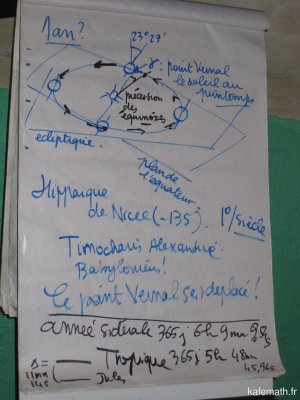 1 an?
23° 27'
γ: point Vernal
le soleil au
printemps
précession
des
équinoxes
écliptique
plan de
l'équateur
Hipparque
de Nicée (-135). 1°/siècle
Timocharis Alexandrie
Babyloniens!
Le point Vernal s'est déplacé!
année sidérale 365j 6h 9mn 9,8s
Tropique 365j 5h 48mn
45,96s
Δ =
11mn
14s
Jules
kafemath.fr